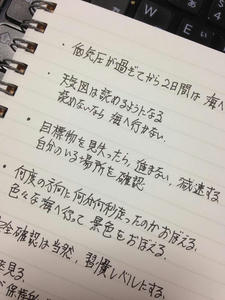 ・低気圧が過ぎてから2日間は 海へ
・天気図は読めるようになる
読めないなら 海へ行かない.
・目標物を見失ったら, 進まない, 減速する
自分のいる場所を確認
・何度の方向に何分何秒走ったのかおぼえる.
色々な海へ行って 景色をおぼえる.
安全確認は当然, 習慣レベルにする.
見る.